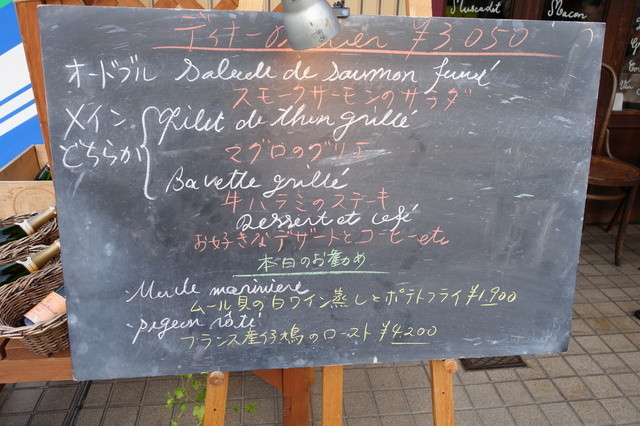 ディナー ¥3,050
オードブル Salade de saumon fumé
スモークサーモンのサラダ
メイン どちらか
Filet de thon grillé
マグロのグリエ
Bavette grillé
牛ハラミのステーキ
Dessert et café
お好きなデザートとコーヒー etc
本日のお勧め
・Moule marinière
ムール貝の白ワイン蒸しとポテトフライ ¥1,900
・pigeon rôti
フランス産仔鳩のロースト ¥4,200
Muscadet
Macon